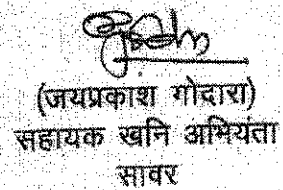 (जयप्रकाश गोदारा)
सहायक खनि अभियंता
सावर